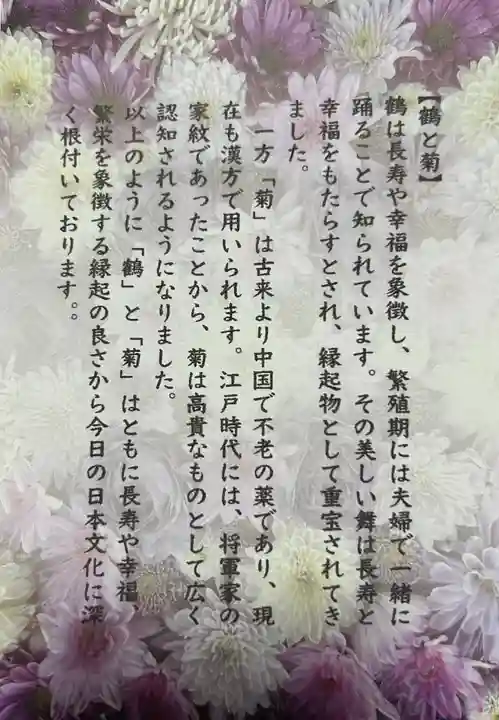 【鶴と菊】
鶴は長寿や幸福を象徴し、繁殖期には夫婦で一緒に
踊ることで知られています。その美しい舞は長寿と
幸福をもたらすとされ、縁起物として重宝されてき
ました。
一方「菊」は古来より中国で不老の薬であり、現
在も漢方で用いられます。江戸時代には、将軍家の
家紋であったことから、菊は高貴なものとして広く
認知されるようになりました。
以上のように「鶴」と「菊」はともに長寿や幸福、
繁栄を象徴する縁起の良さから今日の日本文化に深
く根付いております。。